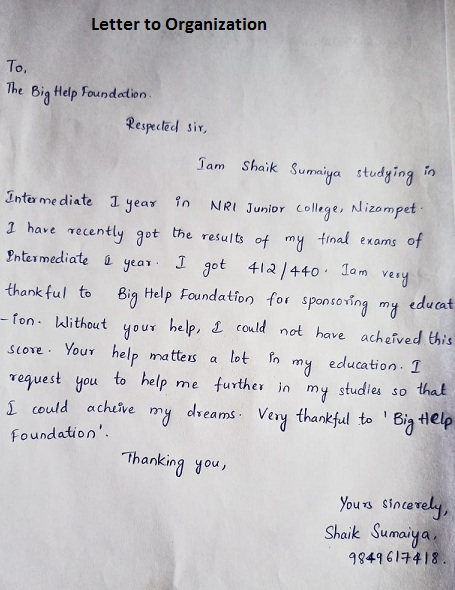 Letter to Organization
To,
The Big Help Foundation.
Respected sir,
Iam Shaik Sumaiya studying in
Intermediate I year in NRI Junior college, Nizampet.
I have recently got the results of my final exams of
Intermediate I year. I got 412/440. Iam very
thankful to Big Help Foundation for sponsoring my educat
-ion. Without your help, I could not have acheived this
score. Your help matters a lot in my education. I
request you to help me further in my studies so that
I could acheive my dreams. Very thankful to 'Big Help
Foundation'.
Thanking you,
Yours sincerely,
Shaik Sumaiya.
9849617418.